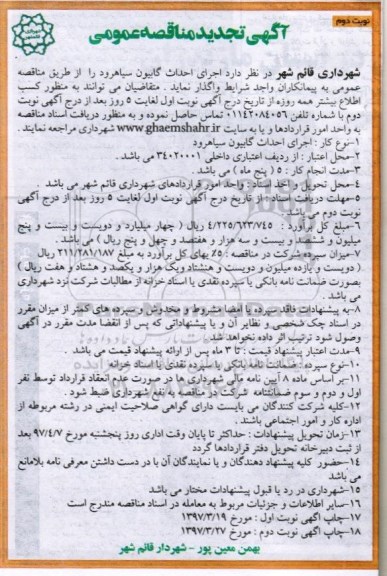 نوبت دوم
آگهی تجدید مناقصه عمومی
شهرداری قائم شهر در نظر دارد اجرای احداث گابیون سیاهرود را از طریق مناقصه
عمومی به پیمانکاران واجد شرایط واگذار نماید . متقاضیان می توانند به منظور کسب
اطلاع بیشتر همه روزه از تاریخ درج آگهی نوبت اول لغایت ۵ روز بعد از درج آگهی نوبت
دوم با شماره تلفن ۰۱۱۴۲۰۸۴۰۵۶ تماس حاصل نموده و به منظور دریافت اسناد مناقصه
به واحد امور قراردادها و یا به سایت www.ghaemshahr.ir شهرداری مراجعه نمایند .
۱-نوع کار : اجرای احداث گابیون سیاهرود
۲-محل اعتبار : از ردیف اعتباری داخلی ۳۴۰۲۰۰۰۱ می باشد .
۳-مدت انجام کار : ۵ ( پنج ماه ) می باشد .
۴-محل تحویل واخذ اسناد : واحد امور قراردادهای شهرداری قائم شهر می باشد
۵-مهلت دریافت اسناد : از تاریخ درج آگهی نوبت اول لغایت ۵ روز بعد از درج آگهی
نوبت دوم می باشد
۶-مبلغ کل برآورد : ۴/۲۲۵/۶۲۳/۷۴۵ ریال ( چهار میلیارد و دویست و بیست و پنج
میلیون و ششصد و بیست و سه هزار و هفتصد و چهل و پنج ریال ) می باشد .
۷-میزان سپرده شرکت در مناقصه : ۵٪ بهای کل برآورد به مبلغ ۲۱۱/۲۸۱/۱۸۷ ریال
( دویست و یازده میلیون و دویست و هشتاد ویک هزار و یکصد و هشتاد و هفت ریال )
بصورت ضمانت نامه بانکی یا سپرده نقدی یا اسناد خزانه از مطالبات شرکت نزد شهرداری
می باشد .
۸-به پیشنهادات فاقد سپرده یا امضا مشروط و مخدوش و سپرده های کمتر از میزان مقرر
در اسناد چک شخصی و نظایر آن و یا پیشنهاداتی که پس از انقضا مدت مقرر در آگهی
وصول شود ترتیب اثر داده نخواهد شد.
۹-مدت اعتبار پیشنهاد قیمت : تا ۳ ماه پس از ارائه پیشنهاد قیمت می باشد .
۱۰-نوع سپرده : ضمانت نامه بانکی یا سپرده نقدی یا اسناد خزانه
۱۱-بر اساس ماده ۸ آیین نامه مالی شهرداری ها در صورت عدم انعقاد قرارداد توسط نفر
اول و دوم و سوم ضمانتنامه شرکت در مناقصه به نفع شهرداری ضبط شود .
۱۲-کلیه شرکت کنندگان می بایست دارای گواهی صلاحیت ایمنی در رشته مربوطه از
اداره کار و امور اجتماعی باشند .
۱۳-زمان تحویل پیشنهادات : حداکثر تا پایان وقت اداری روز پنجشنبه مورخ ۹۷/۴/۷ بعد
از ثبت دبیرخانه تحویل دفتر قراردادها گردد
۱۴-حضور کلیه پیشنهاد دهندگان و یا نمایندگان آن با در دست داشتن معرفی نامه بلامانع
می باشد
۱۵-شهرداری در رد یا قبول پیشنهادات مختار می باشد
۱۶-سایر اطلاعات و جزئیات مربوط به معامله در اسناد مناقصه مندرج است
۱۷-چاپ آگهی نوبت اول : مورخ ۱۳۹۷/۳/۱۹
۱۸-چاپ آگهی نوبت دوم : مورخ ۱۳۹۷/۳/۲۷
بهمن معین پور - شهردار قائم شهر